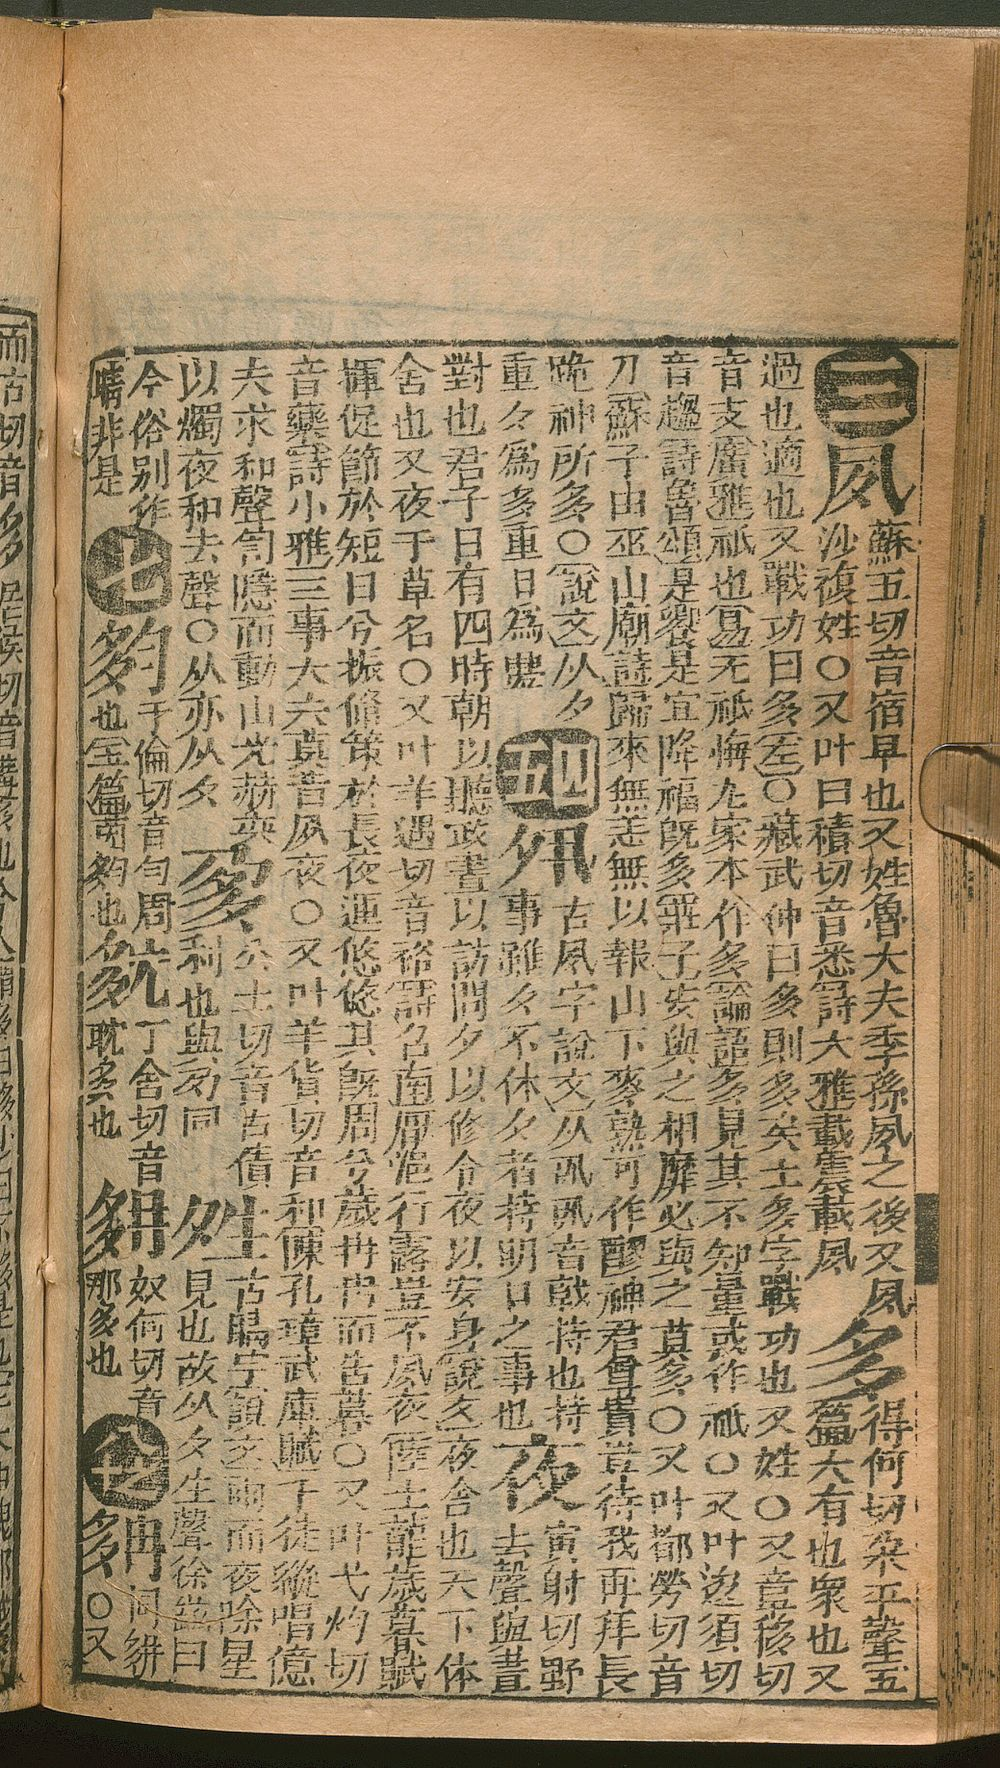 三 夙 蘇五切音宿早也又姓魯大夫季孫夙之後又夙
沙複姓○又叶曰積切音悉詩大雅載震載夙 多 得何切朶平聲五
篇大有也衆也又
過也適也又戰功曰多左○臧武仲曰多則多矣士多字戰功也又姓○又音移切
音支廣雅祇也易无祗悔九家本作多論語多見其不知量或作祇○又叶 須切
音趨詩魯頌是饗是宜降福既多莊子安與之相靡必與之莫多○又叶都勞切音
刀蘇子由巫山廟詩歸來無恙無以報山下麥熟可作醪神君尊貴豈待我再拜長
跪神所多○說文从夕
重夕爲多重日爲疊 四 五 夙 古夙字說文从丮丮音戟持也持
事雖夕不休夕者持明日之事也 夜 寅射切野
去聲與晝
對也君子日有四時朝以聽政晝以訪問夕以修令夜以安身說文夜舍也天下休
舍也又夜干草名○又叶羊遇切音裕詩召南厭浥行露豈不夙夜陸士龍歲暮賦
揮促節於短日兮振脩策於長夜運悠悠其既周兮歲冉冉而告暮○又叶弋灼切
音藥詩小雅三事大夫莫肯夙夜○又叶羊貨切音和陳孔璋武庫賦千徒縱唱億
夫求和聲訇隱而動山光赫奕
以燭夜和去聲○从亦从夕 公土切音古債
利也與夃同 姓 古晴字說文雨而夜除星
見也故从夕生聲徐鍇曰
今俗別作
晴非是 七 夠 于倫切音勻周
也玉篇 夠也 丁含切音
耽多也 奴何切音
那多也 全 同
○又